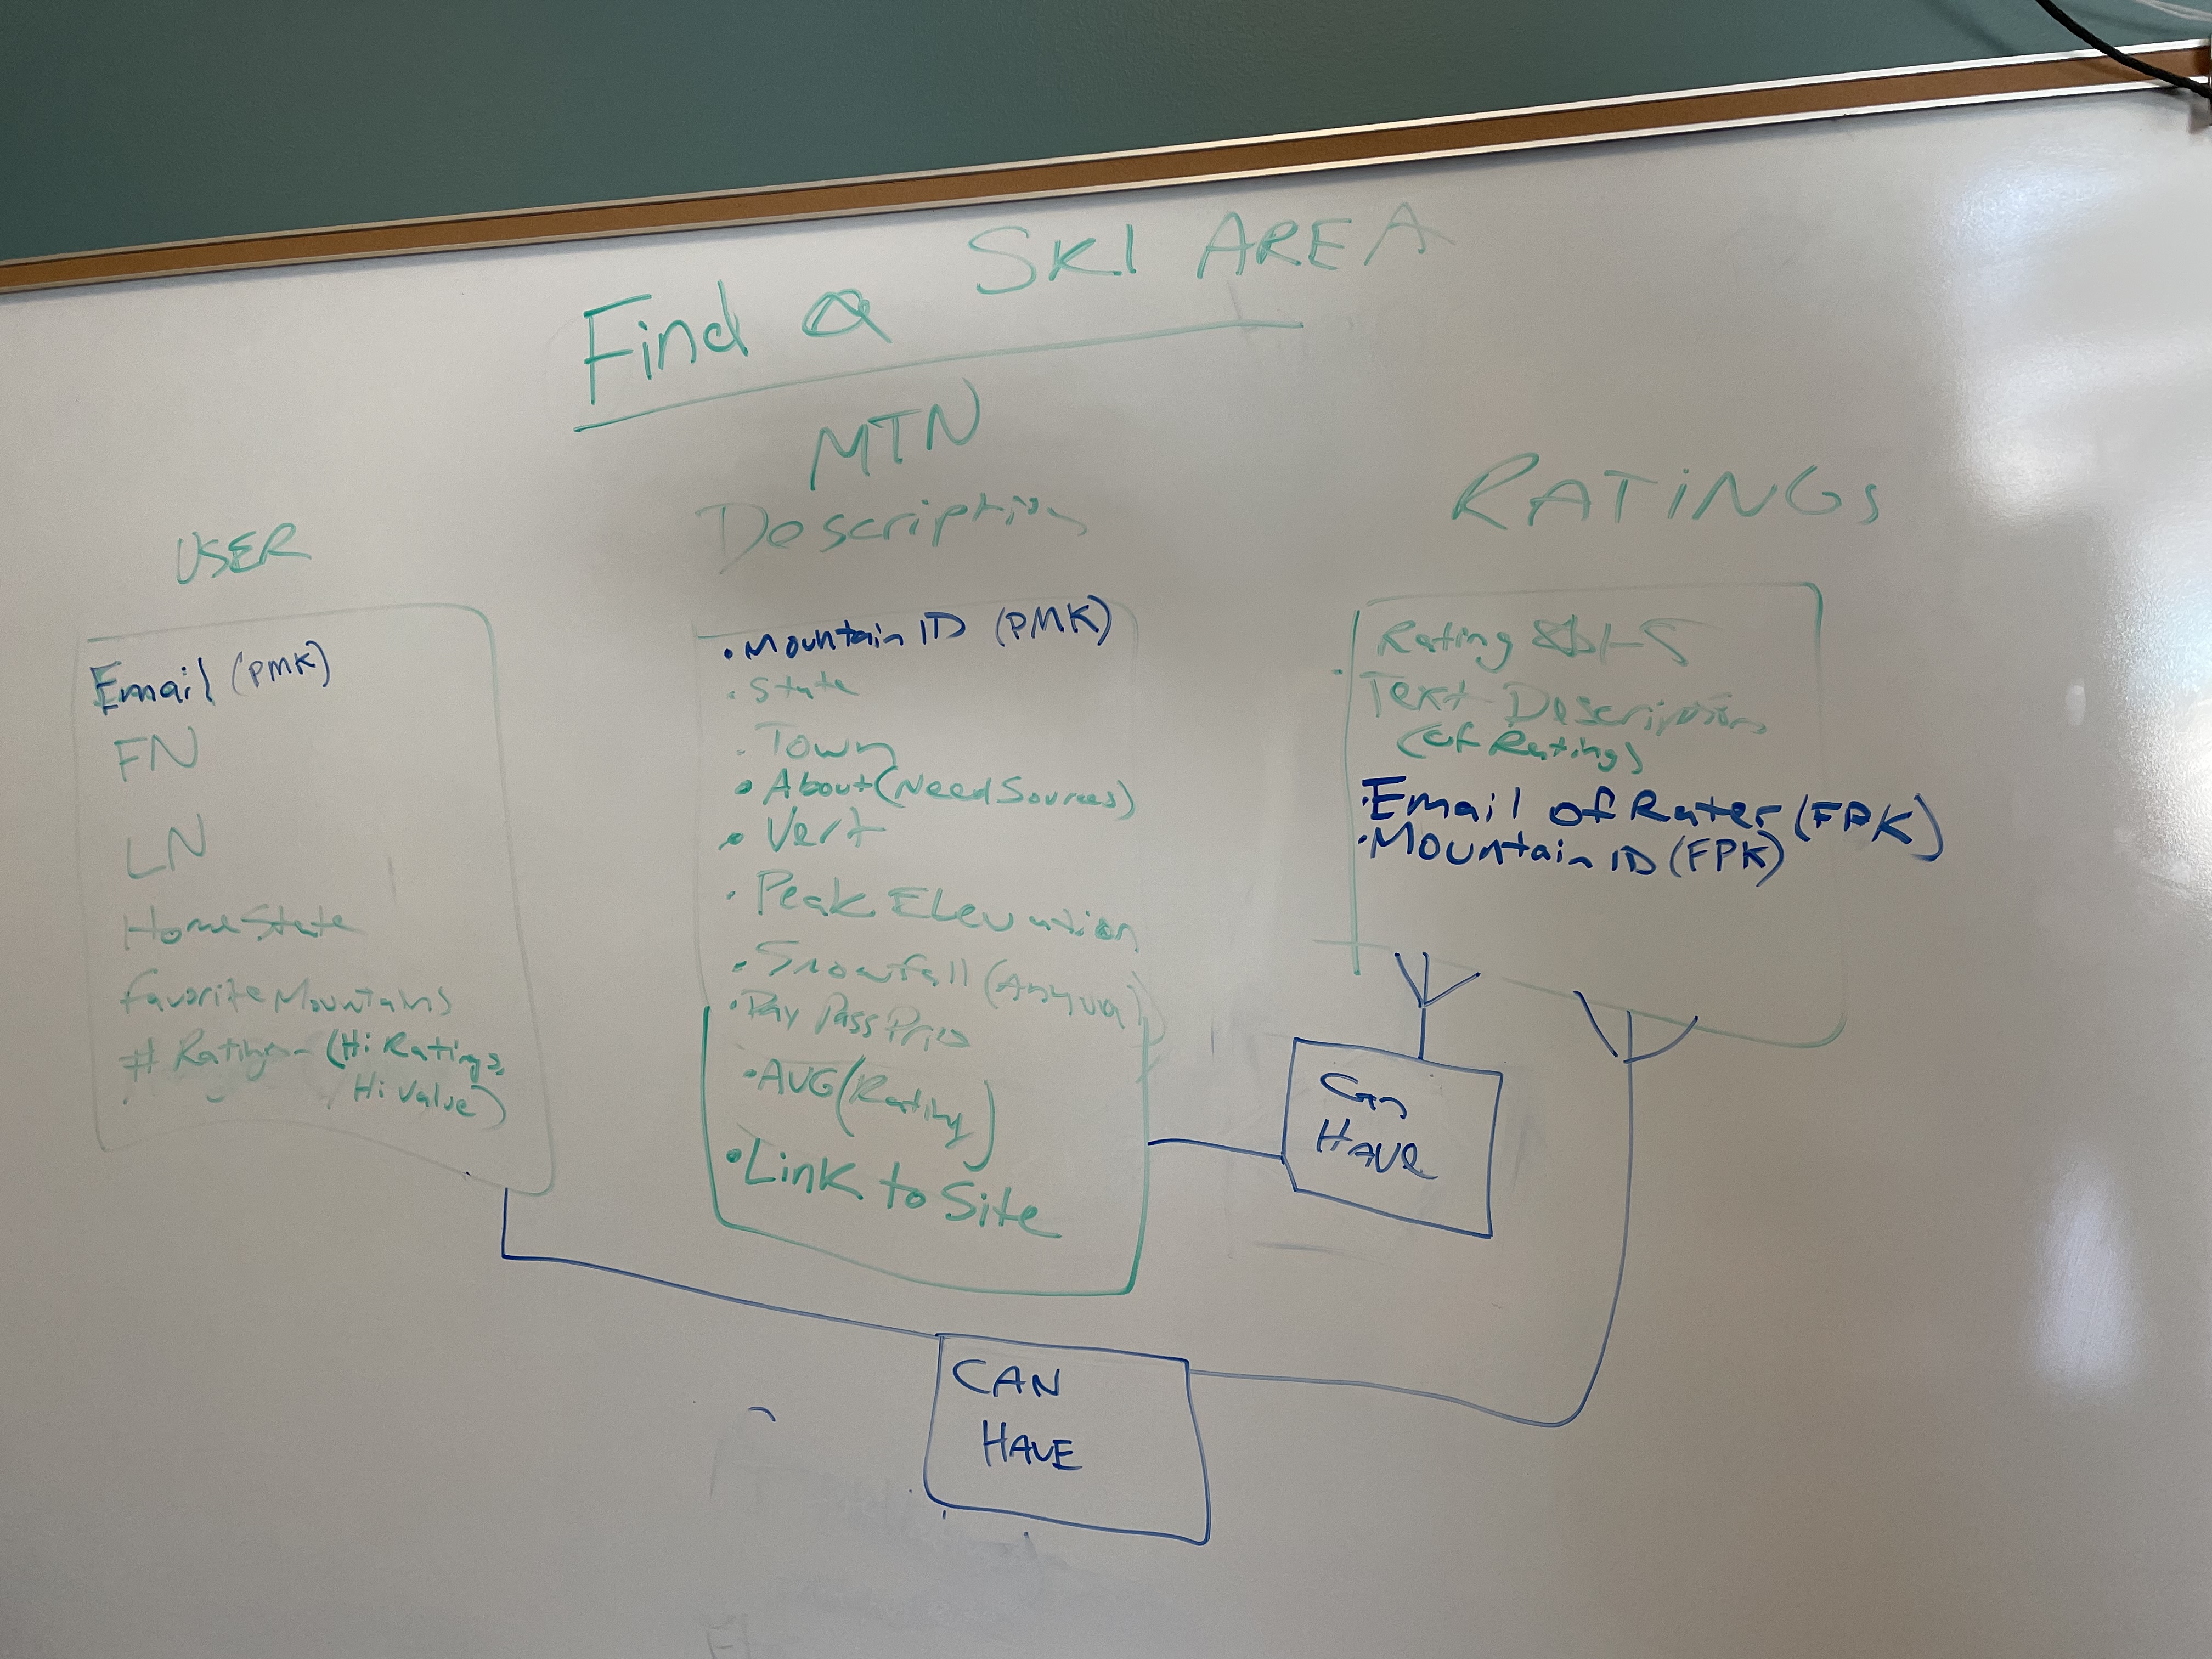 Find a SKI AREA
USER
Email (PMK)
FN
LN
Home State
Favorite Mountains
# Ratings - (Hi Ratings,
Hi Value)
MTN
Description
• Mountain ID (PMK)
• State
• Town
• About (Need Sources)
• Vert
• Peak Elevation
• Snowfall
• Day Pass Price
• AVG (Rating)
• Link to Site
RATINGS
Rating 1-5
• Text Description
(of Rating)
• Email of Rater (FPK)
• Mountain ID (FPK)
Can
HAVE
CAN
HAVE